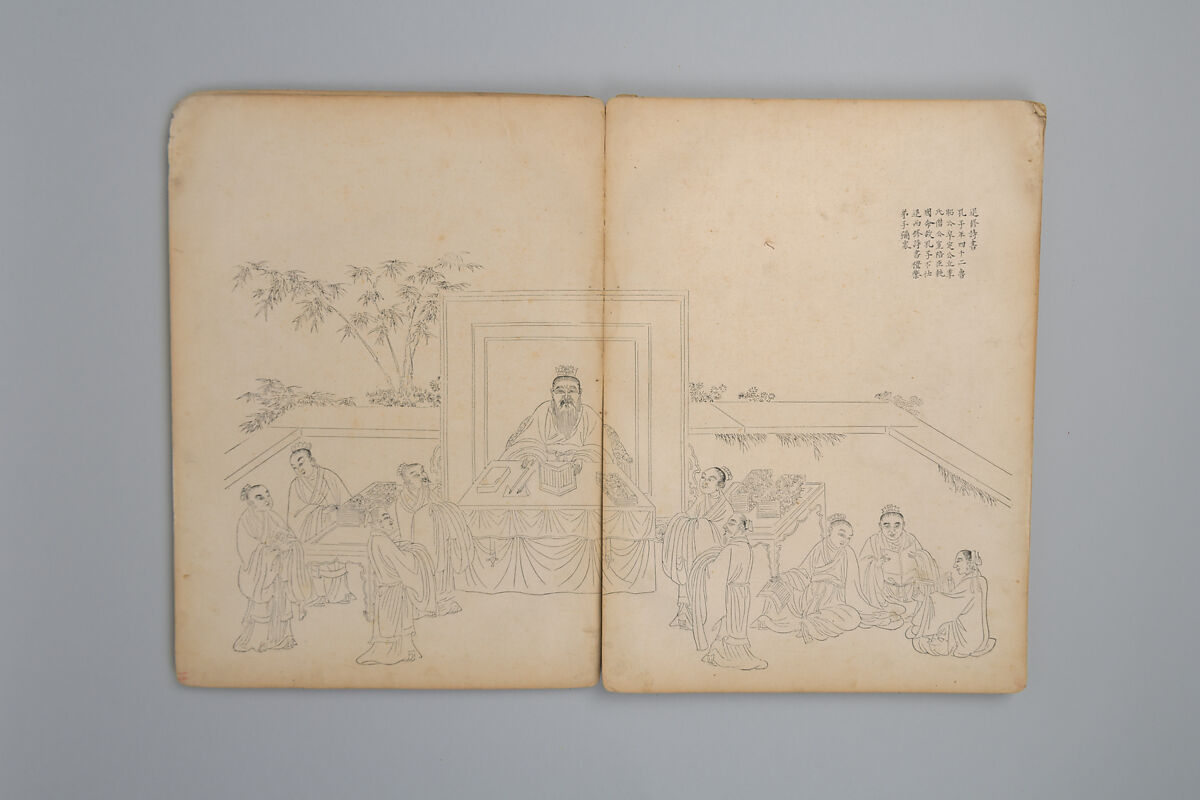 退修詩書
孔子年四十二魯
昭公卒定公立季
氏僭公室陪臣執
國命故孔子不仕
退而修詩書禮樂
弟子彌衆